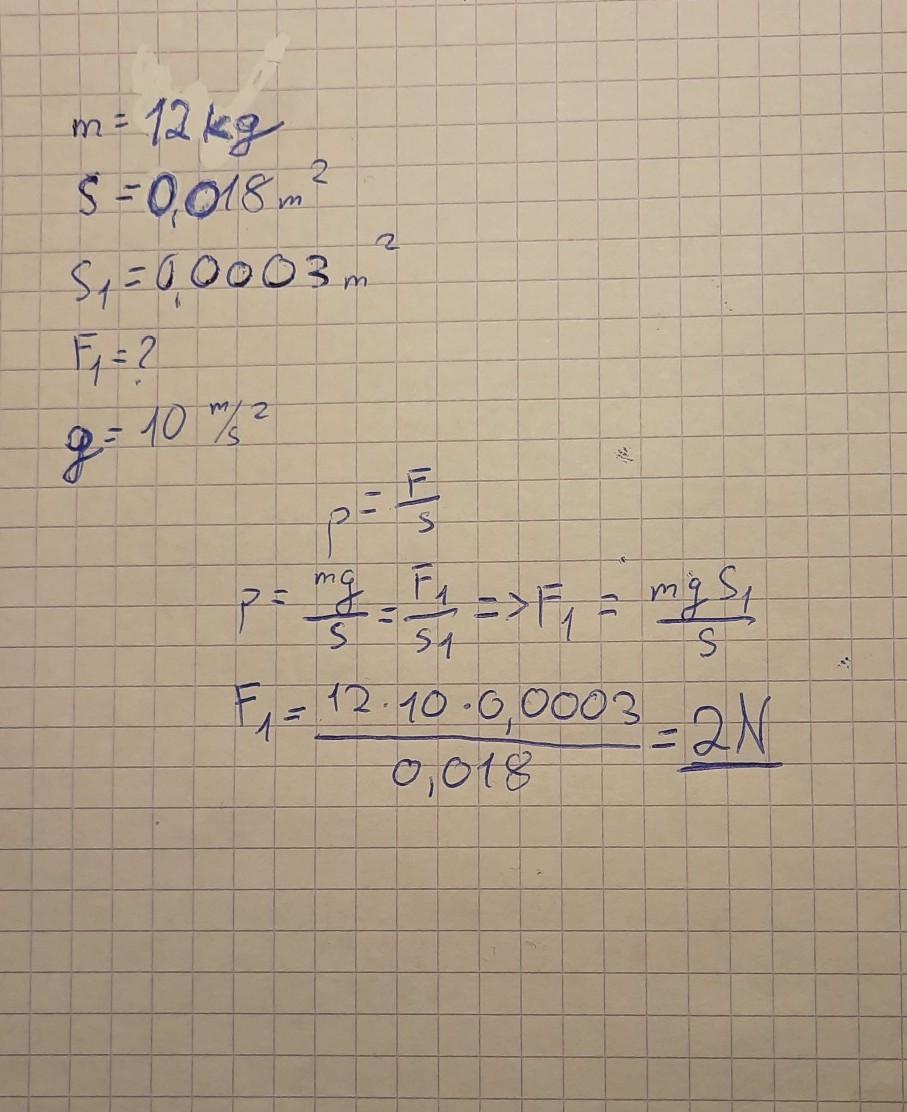 m = 12 kg
S = 0,018 m²
S₁ = 0,0003 m²
F₁ = ?
g = 10 m/s²
p = F/s
p = mg/S = F₁/S₁ => F₁ = mgS₁/S
F₁ = 12·10·0,0003/0,018 = 2N